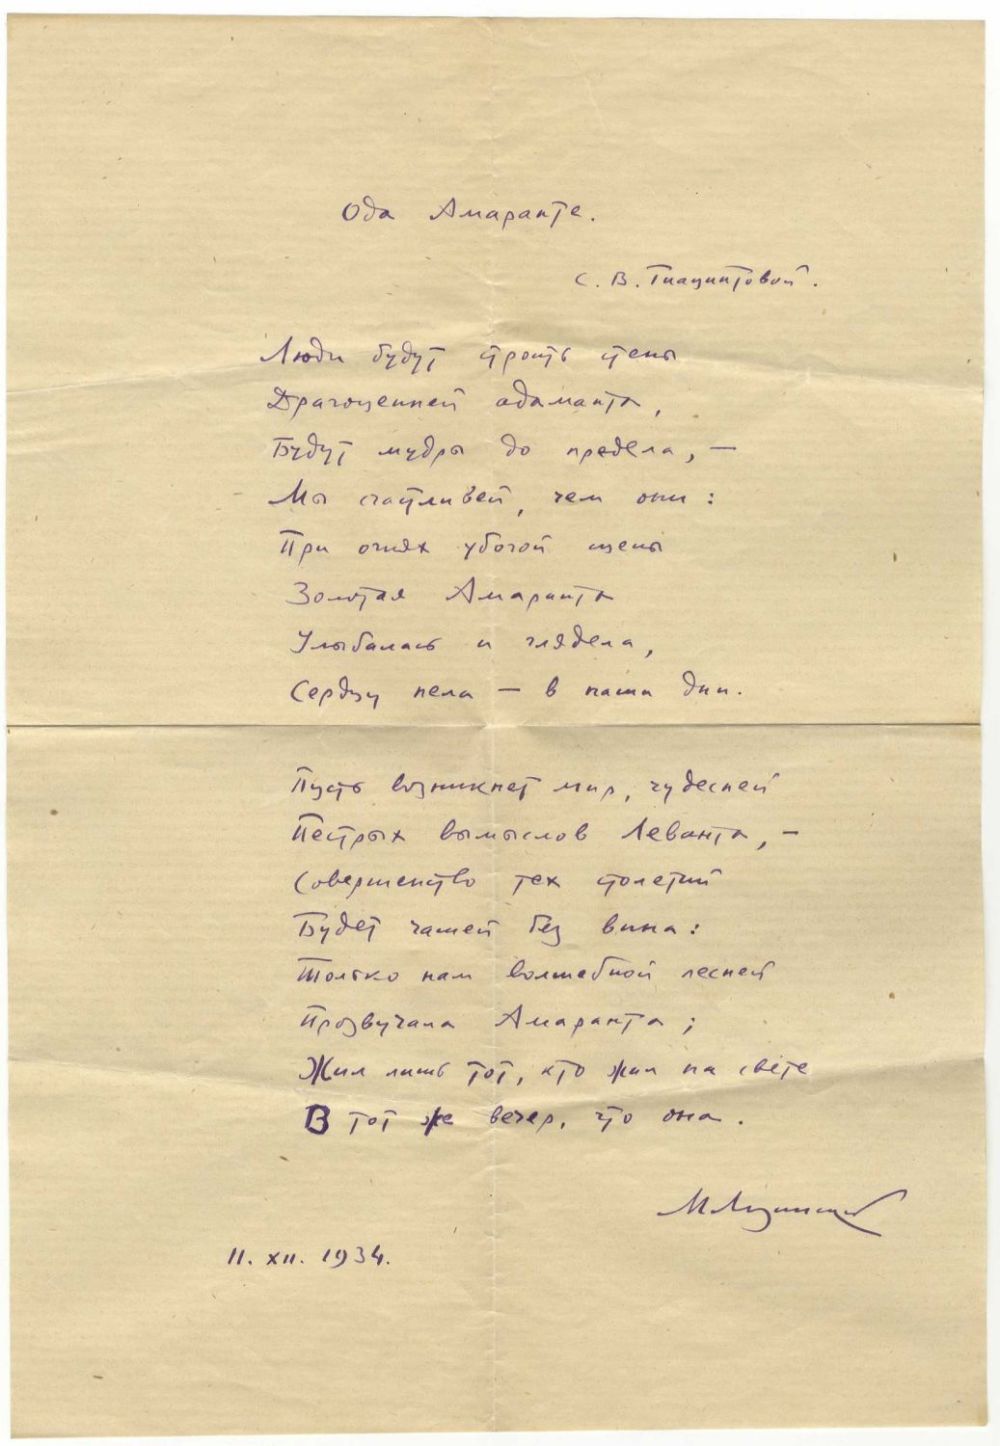 Ода Амаранте.
С. В. Гиацинтовой.
Люди будут строить стены
Драгоценней адаманта,
Будут мудры до предела, —
Мы счастливей, чем они:
При огнях убогой сцены
Золотая Амаранта
Улыбалась и глядела,
Сердцу пела — в наши дни.
Пусть возникнет мир, чудесней
Пестрых вымыслов Леванта, —
Совершенство тех столетий
Будет чашей без вина:
Только нам волшебной песней
Прозвучала Амаранта;
Жил лишь тот, кто жил на свете
В тот же вечер, что она.
М Лозинский
11. XII. 1934.